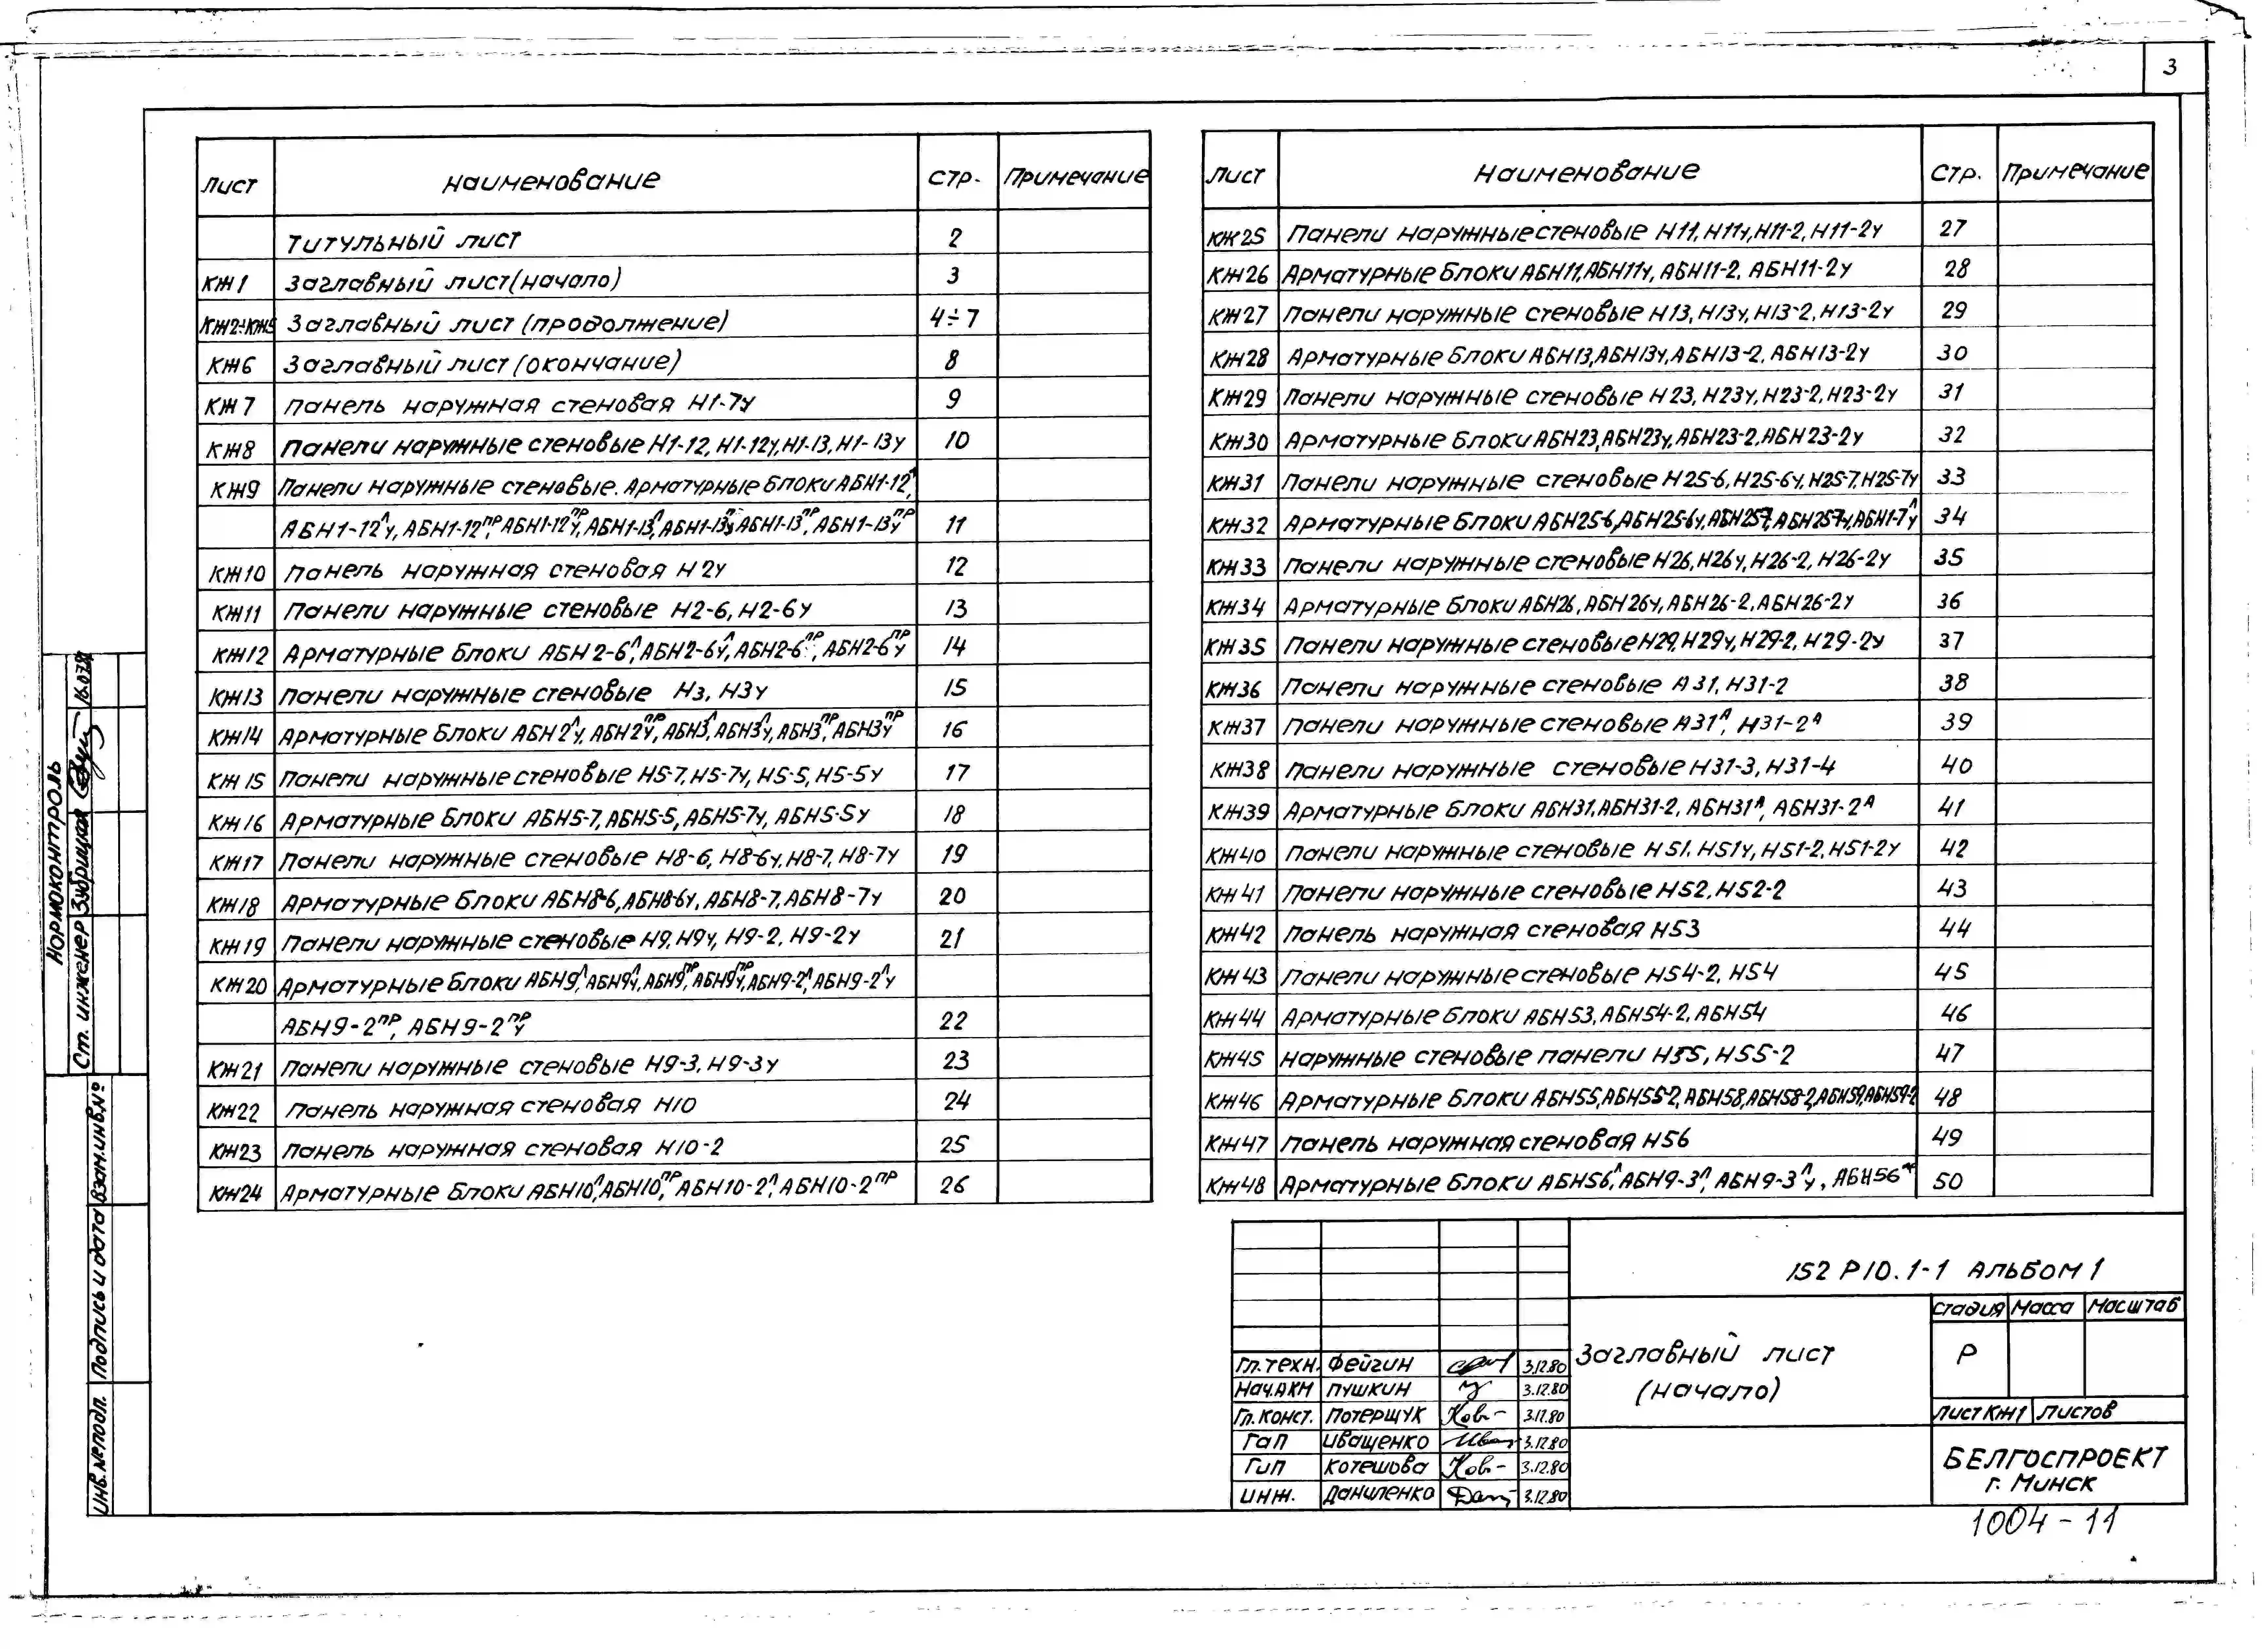 3
Лист Наименование Стр. Примечание
Титульный лист 2
КЖ1 Заглавный лист (начало) 3
КЖ2÷КЖ5 Заглавный лист (продолжение) 4÷7
КЖ6 Заглавный лист (окончание) 8
КЖ7 Панель наружная стеновая Н1-7у 9
КЖ8 Панели наружные стеновые Н1-12, Н1-12у, Н1-13, Н1-13у 10
КЖ9 Панели наружные стеновые. Арматурные блоки АБН1-12ᴫ,
АБН1-12ᴫу, АБН1-12ᴨᴩ, АБН1-12ᴨᴩу, АБН1-13ᴫ, АБН1-13ᴫу, АБН1-13ᴨᴩ, АБН1-13ᴨᴩу 11
КЖ10 Панель наружная стеновая Н2у 12
КЖ11 Панели наружные стеновые Н2-6, Н2-6у 13
КЖ12 Арматурные блоки АБН2-6ᴫ, АБН2-6ᴫу, АБН2-6ᴨᴩ, АБН2-6ᴨᴩу 14
КЖ13 Панели наружные стеновые Н3, Н3у 15
КЖ14 Арматурные блоки АБН2ᴫу, АБН2ᴨᴩу, АБН3ᴫ, АБН3ᴫу, АБН3ᴨᴩ, АБН3ᴨᴩу 16
КЖ15 Панели наружные стеновые Н5-7, Н5-7у, Н5-5, Н5-5у 17
КЖ16 Арматурные блоки АБН5-7, АБН5-5, АБН5-7у, АБН5-5у 18
КЖ17 Панели наружные стеновые Н8-6, Н8-6у, Н8-7, Н8-7у 19
КЖ18 Арматурные блоки АБН8-6, АБН8-6у, АБН8-7, АБН8-7у 20
КЖ19 Панели наружные стеновые Н9, Н9у, Н9-2, Н9-2у 21
КЖ20 Арматурные блоки АБН9ᴫ, АБН9ᴫу, АБН9ᴨᴩ, АБН9ᴨᴩу, АБН9-2ᴫ, АБН9-2ᴫу
АБН9-2ᴨᴩ, АБН9-2ᴨᴩу 22
КЖ21 Панели наружные стеновые Н9-3, Н9-3у 23
КЖ22 Панель наружная стеновая Н10 24
КЖ23 Панель наружная стеновая Н10-2 25
КЖ24 Арматурные блоки АБН10ᴫ, АБН10ᴨᴩ, АБН10-2ᴫ, АБН10-2ᴨᴩ 26
Лист Наименование Стр. Примечание
КЖ25 Панели наружные стеновые Н11, Н11у, Н11-2, Н11-2у 27
КЖ26 Арматурные блоки АБН11, АБН11у, АБН11-2, АБН11-2у 28
КЖ27 Панели наружные стеновые Н13, Н13у, Н13-2, Н13-2у 29
КЖ28 Арматурные блоки АБН13, АБН13у, АБН13-2, АБН13-2у 30
КЖ29 Панели наружные стеновые Н23, Н23у, Н23-2, Н23-2у 31
КЖ30 Арматурные блоки АБН23, АБН23у, АБН23-2, АБН23-2у 32
КЖ31 Панели наружные стеновые Н25-6, Н25-6у, Н25-7, Н25-7у 33
КЖ32 Арматурные блоки АБН25-6, АБН25-6у, АБН25-7, АБН25-7у, АБН1-7ᴫу 34
КЖ33 Панели наружные стеновые Н26, Н26у, Н26-2, Н26-2у 35
КЖ34 Арматурные блоки АБН26, АБН26у, АБН26-2, АБН26-2у 36
КЖ35 Панели наружные стеновые Н29, Н29у, Н29-2, Н29-2у 37
КЖ36 Панели наружные стеновые Н31, Н31-2 38
КЖ37 Панели наружные стеновые Н31ᴬ, Н31-2ᴬ 39
КЖ38 Панели наружные стеновые Н31-3, Н31-4 40
КЖ39 Арматурные блоки АБН31, АБН31-2, АБН31ᴬ, АБН31-2ᴬ 41
КЖ40 Панели наружные стеновые Н51, Н51у, Н51-2, Н51-2у 42
КЖ41 Панели наружные стеновые Н52, Н52-2 43
КЖ42 Панель наружная стеновая Н53 44
КЖ43 Панели наружные стеновые Н54-2, Н54 45
КЖ44 Арматурные блоки АБН53, АБН54-2, АБН54 46
КЖ45 Наружные стеновые панели Н55, Н55-2 47
КЖ46 Арматурные блоки АБН55, АБН55-2, АБН58, АБН58-2, АБН59, АБН59-2 48
КЖ47 Панель наружная стеновая Н56 49
КЖ48 Арматурные блоки АБН56ᴫ, АБН9-3ᴫ, АБН9-3ᴫу, АБН56ᴨᴩ 50
Нормоконтроль
Ст. инженер Зубрицкая 16.07.81
Взам.инв.№
Подпись и дата
Инв.№ подл.
152 Р10.1-1 Альбом 1
Гл.техн. Фейгин 3.12.80
Нач.АКМ Пушкин 3.12.80
Гл.конст. Потерщук 3.12.80
ГАП Иващенко 3.12.80
ГИП Котешова 3.12.80
Инж. Даниленко 3.12.80
Заглавный лист
(начало)
Стадия Масса Масштаб
Р
Лист КЖ1 Листов
БЕЛГОСПРОЕКТ
г. Минск
1004-11